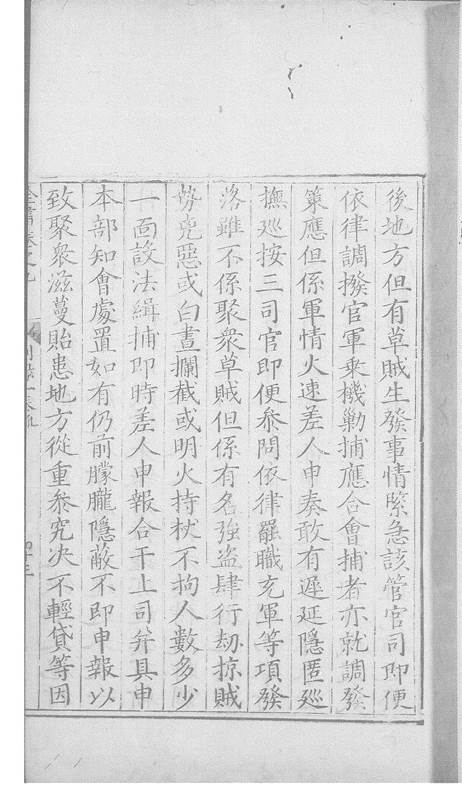 後地方但有草賊生發事情緊急該管官司即便
依律調撥官軍乘機勦捕應合會捕者亦就調發
策應但係軍情火速差人申奏敢有遲延隱匿廵
撫廵按三司官即便叅問依律罷職充軍等項發
落雖不係聚衆草賊但係有名強盗肆行劫掠賊
勢兇惡或白晝攔截或明火持杖不拘人數多少
一面設法緝捕即時差人申報合干上司并具申
本部知會處置如有仍前朦朧隱蔽不即申報以
致聚衆滋蔓貽患地方從重叅究决不輕貸等因
全書卷之九